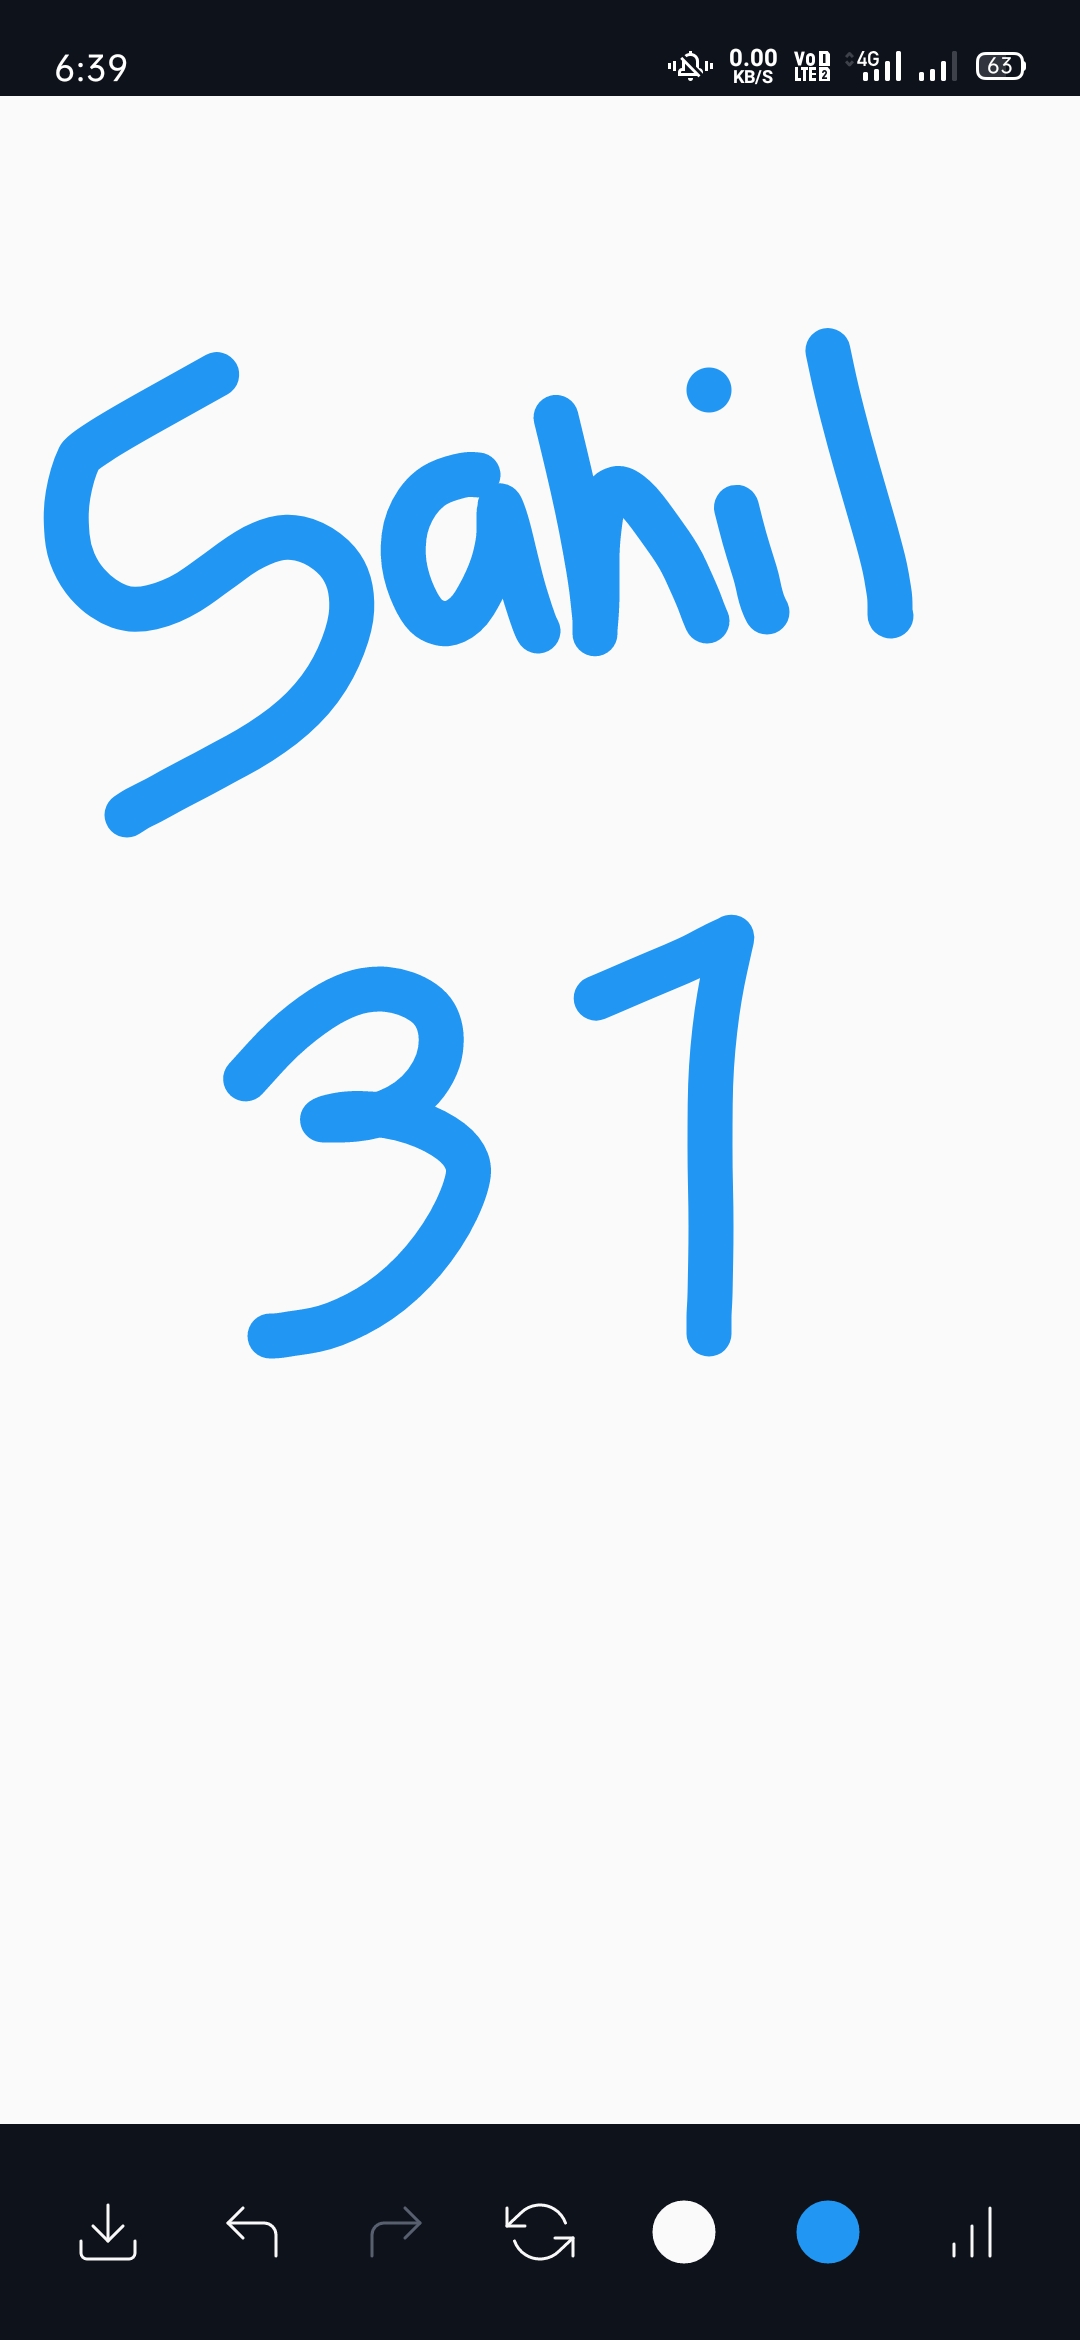 6:39 0.00 KB/S VoLTE 1 2 4G 63
Sahil
31